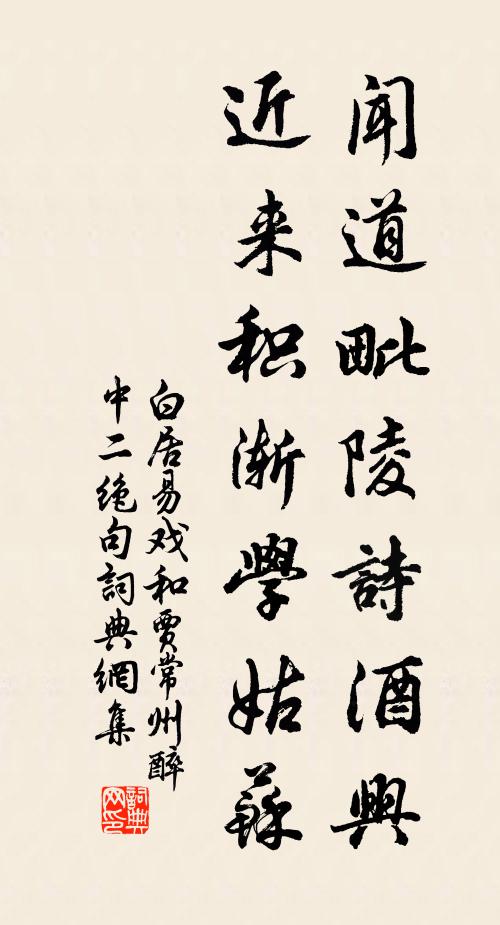 闻道毗陵詩酒興
近来积渐學姑蘇
白居易戏和贾常州醉
中二绝句詞典網集
詞典
网印